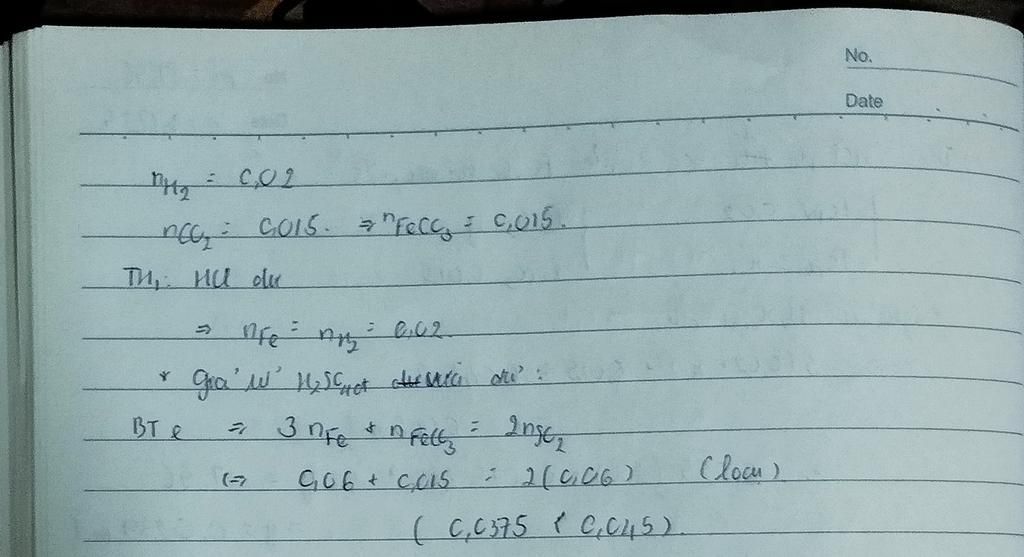 No.
Date
nH₂ = 0,02
nCO₂ = 0,015. ⇒ nFeCO₃ = 0,015.
TH₁: HCl dư
⇒ nFe = nH₂ = 0,02
* Giả sử H₂SO₄ đ vừa đủ :
BT e ⇒ 3 nFe + nFeCO₃ = 2nSO₂
(⇒ 0,06 + 0,015 = 2(0,06) (loại)
( 0,0375 < 0,045).